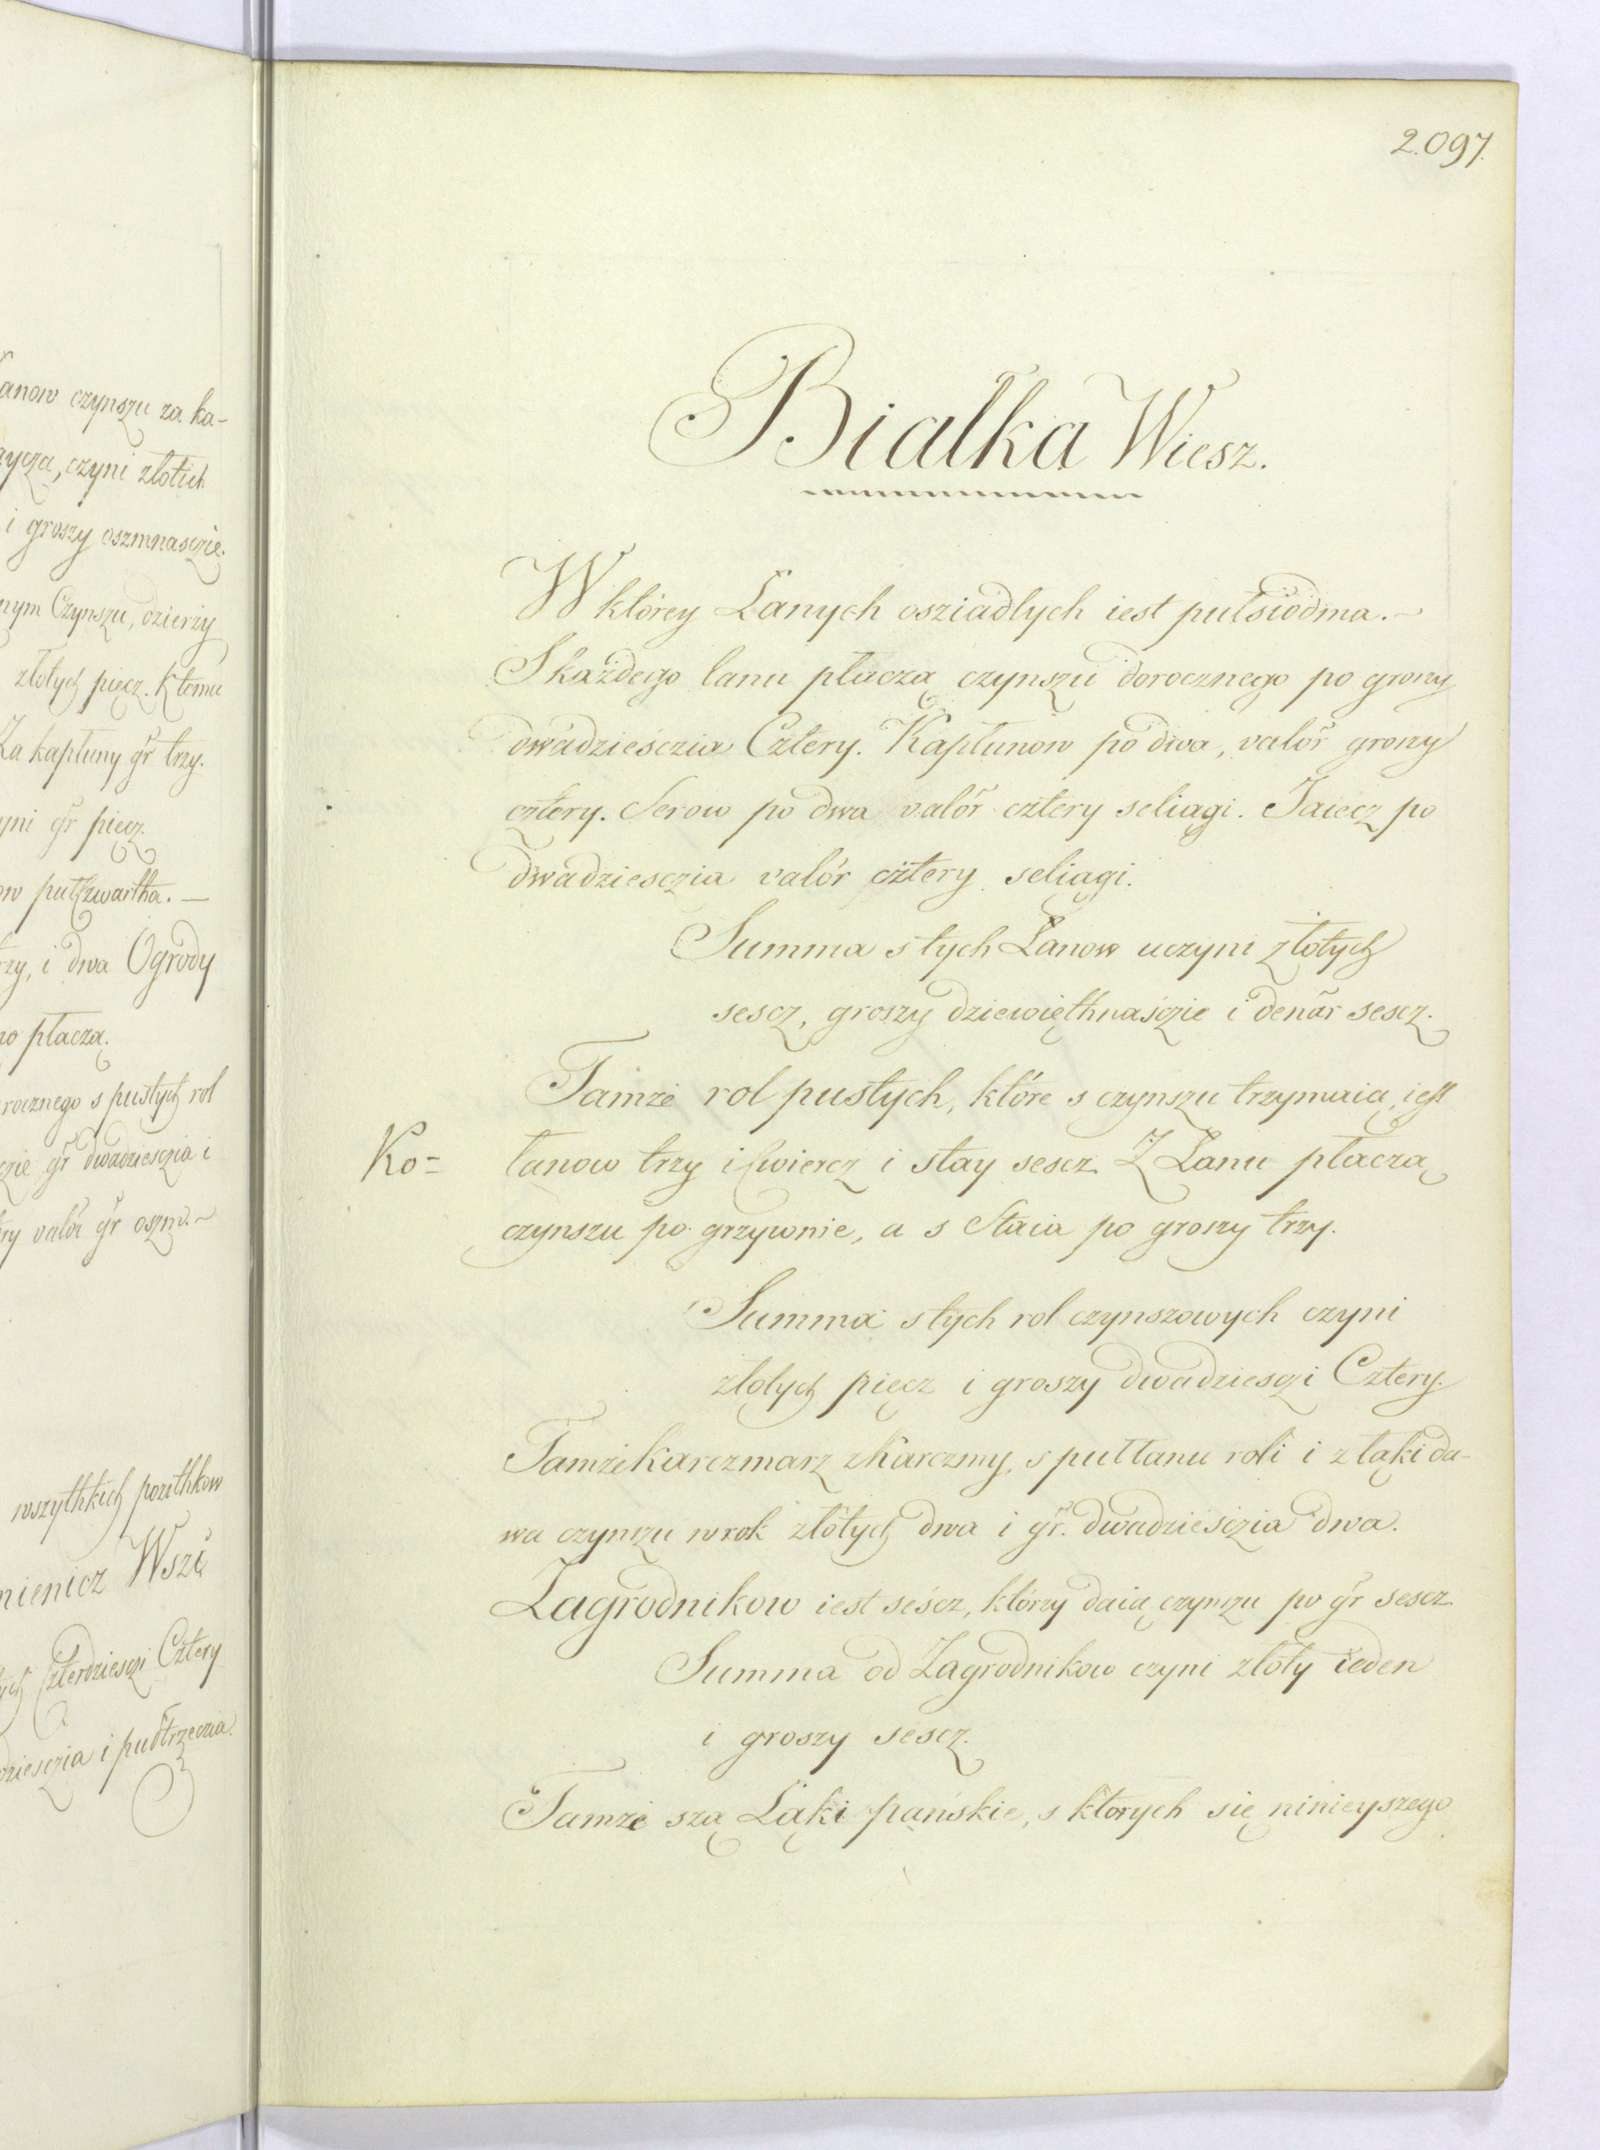 anow czynszu za ka-
aycza, czyni zlotich
i groszy oszmnasczie.
nym Czynszu, dzierży
złotych pięcz. K temu
Za kapłuny gr trzy.
yni gr pięcz.
ow pułczwartha. —
rzy, i dwa Ogrody
no płaczą.
rocznego s pustych rol
czie gr dwadziesczia i
ry valor gr oszm.~
wszythkich pozithkow
mienicz Wszi
ych Czterdziesczi Cztery
dziesczia i pułtrzecza.
2.097.
Bialka Wiesz.
W którey Łanych osziadlych iest pułsiodma.~
S każdego lanu płaczą czynszu dorocznego po groszy
dwadziesczia Cztery. Kapłunow po dwa, valór groszy
cztery. Serow po dwa valór cztery seliągi. Jaiecz po
dwadziesczia valór cztery seliągi.
Summa s tych Łanow uczyni złotych
sescz, groszy dziewięthnasczie i denár sescz.
Tamże rol pustych, które s czynszu trzymaią, iest
Ko= łanow trzy i Cwiercz i stay sescz. Z Łanu płaczą
czynszu po grzywnie, a s Staia po groszy trzy.
Summa s tych rol czynszowych czyni
złotych pięcz i groszy dwadziesczi Cztery.
Tamże karczmarz z Karczmy, s pułłanu roli i z łąki da-
wa czynszu w rok złótych dwa i gr. dwadziesczia dwa.
Zagrodnikow iest sescz, którzy daią czynszu po gr sescz.
Summa od Zagrodnikow czyni złoty ieden
i groszy sescz.
Tamże szą Łąki pańskie, s których się ninieyszego